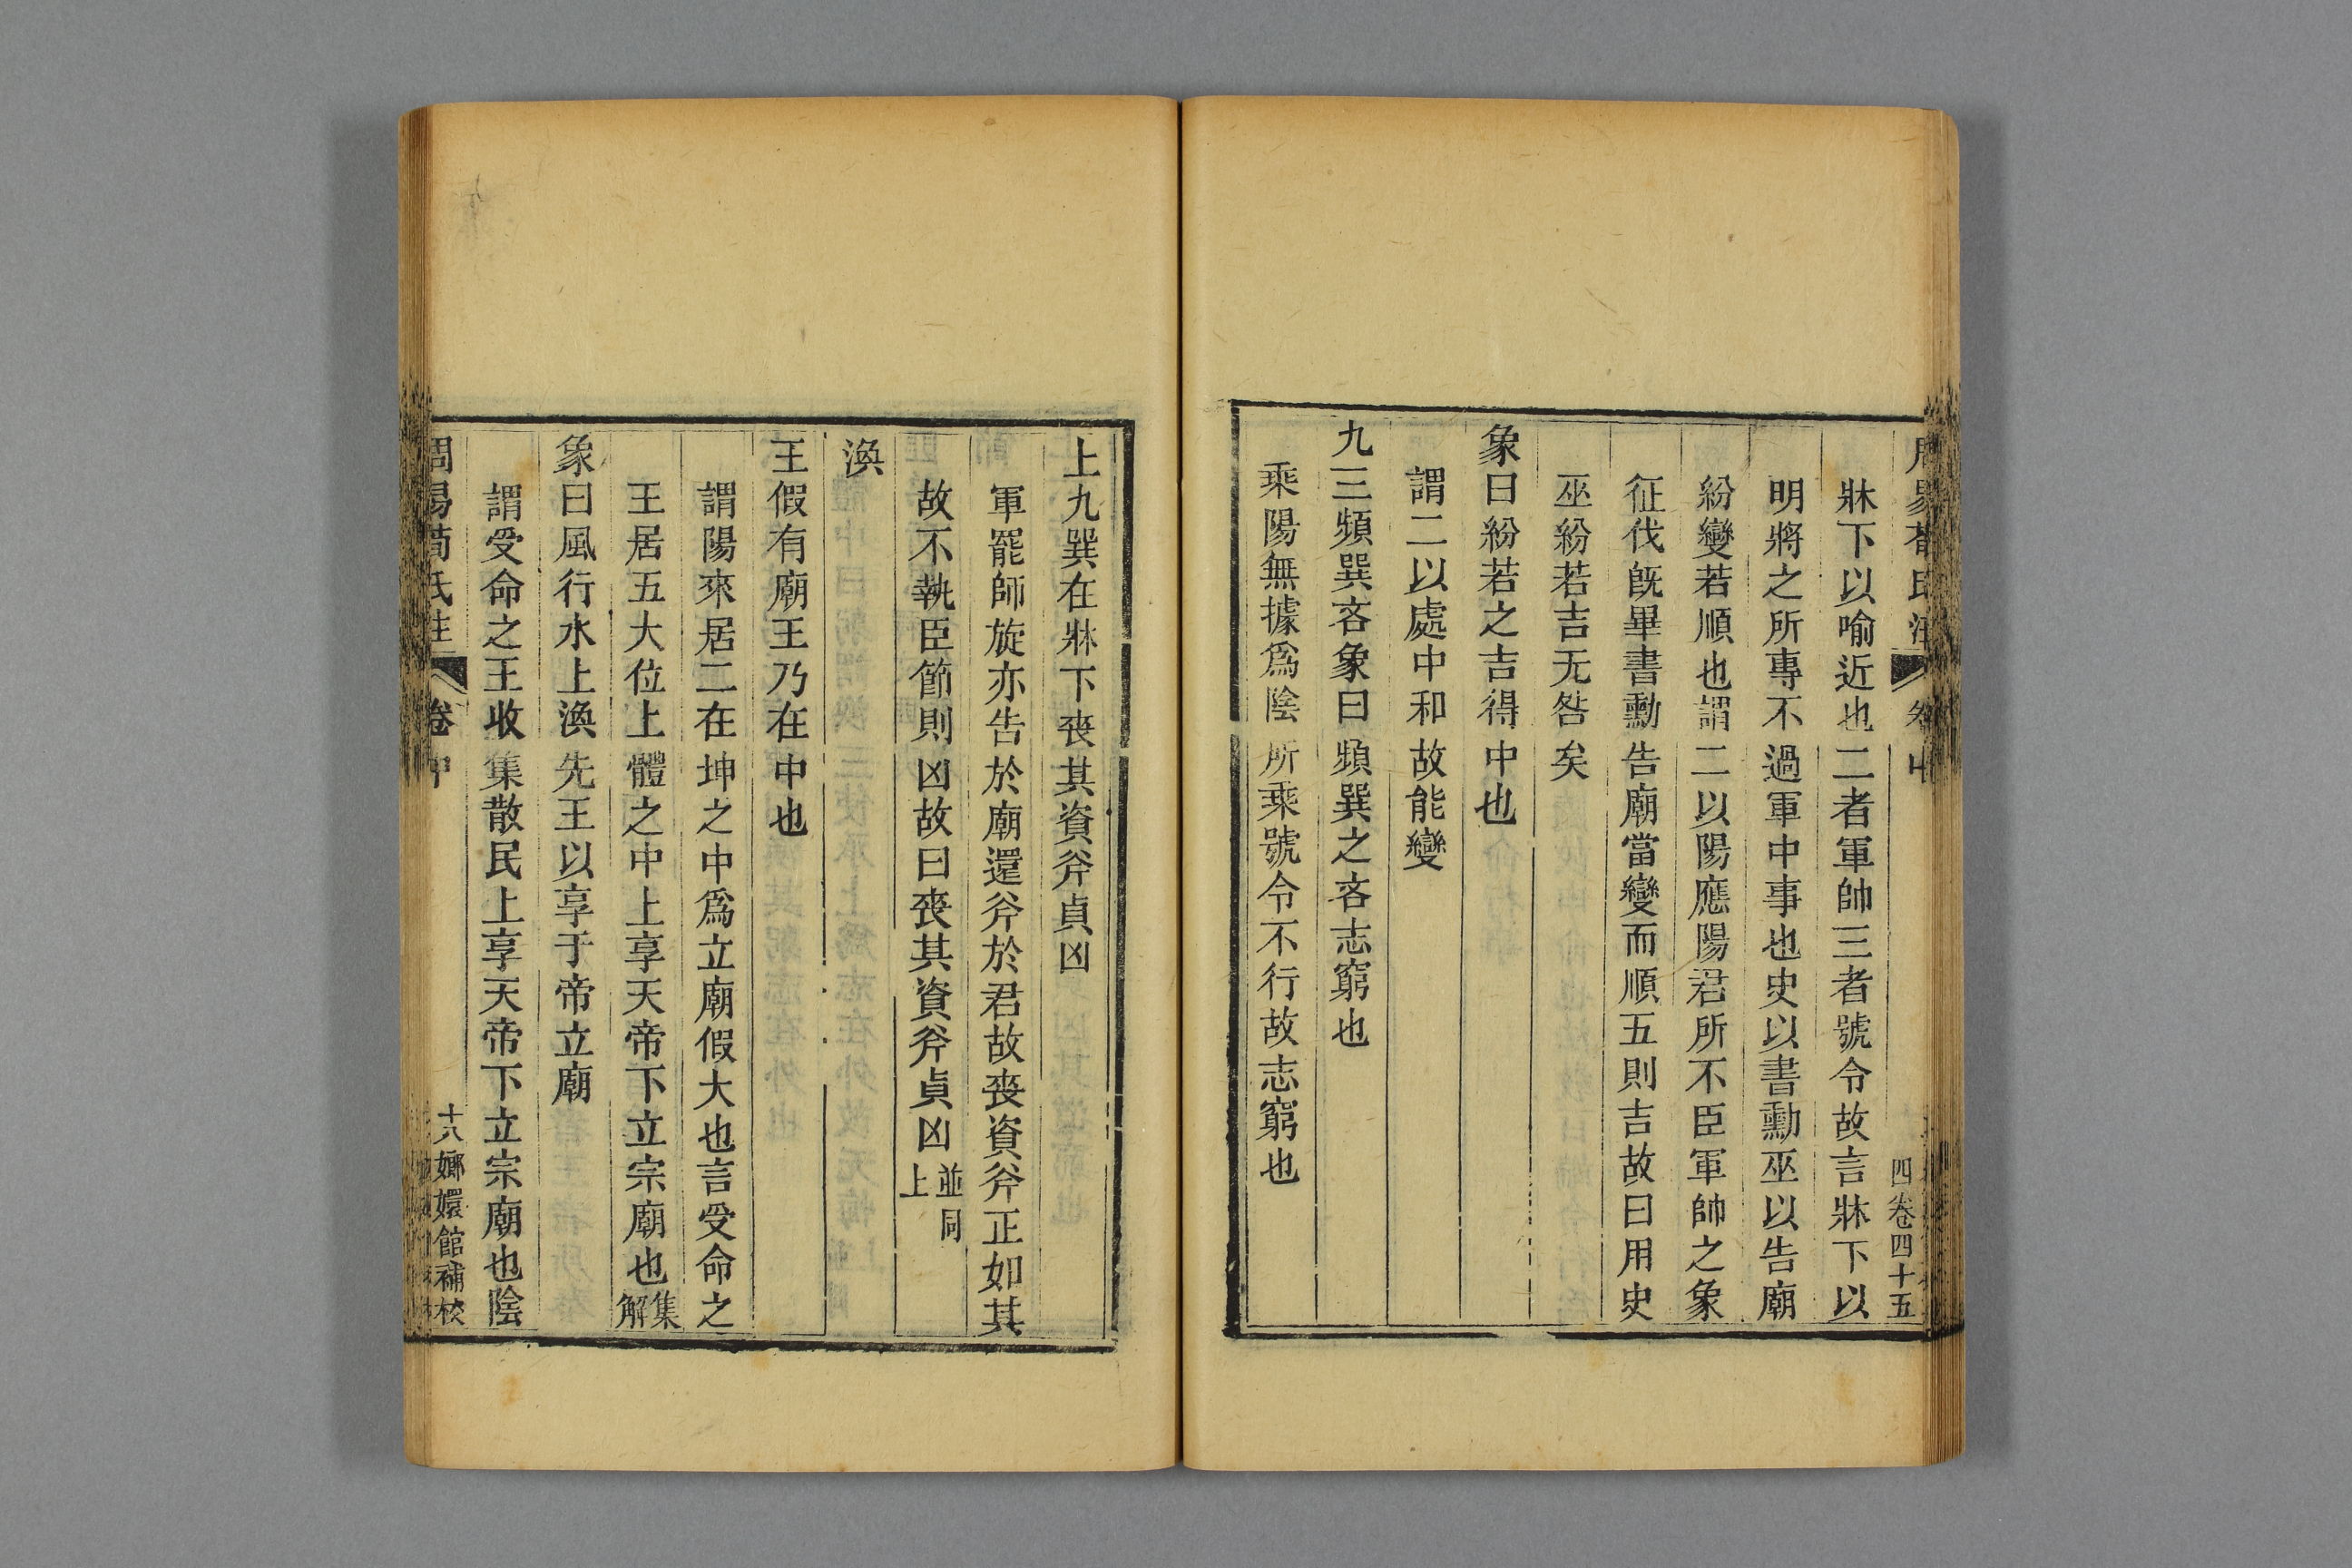 周易荀氏注 卷中 四卷四十五
牀下以喻近也二者軍帥三者號令故言牀下以
明將之所專不過軍中事也史以書勳巫以告廟
紛變若順也謂二以陽應陽君所不臣軍帥之象
征伐旣畢書勳告廟當變而順五則吉故曰用史
巫紛若吉无咎矣
象曰紛若之吉得中也
謂二以處中和故能變
九三頻巽吝象曰頻巽之吝志窮也
乘陽無據爲陰所乘號令不行故志窮也
上九巽在牀下喪其資斧貞凶
軍罷師旋亦告於廟還斧於君故喪資斧正如其
故不執臣節則凶故曰喪其資斧貞凶並同上
渙
王假有廟王乃在中也
謂陽來居二在坤之中爲立廟假大也言受命之
王居五大位上體之中上享天帝下立宗廟也集解
象曰風行水上渙先王以享于帝立廟
謂受命之王收集散民上享天帝下立宗廟也陰
周易荀氏注 卷中 十六 嫏嬛館補校